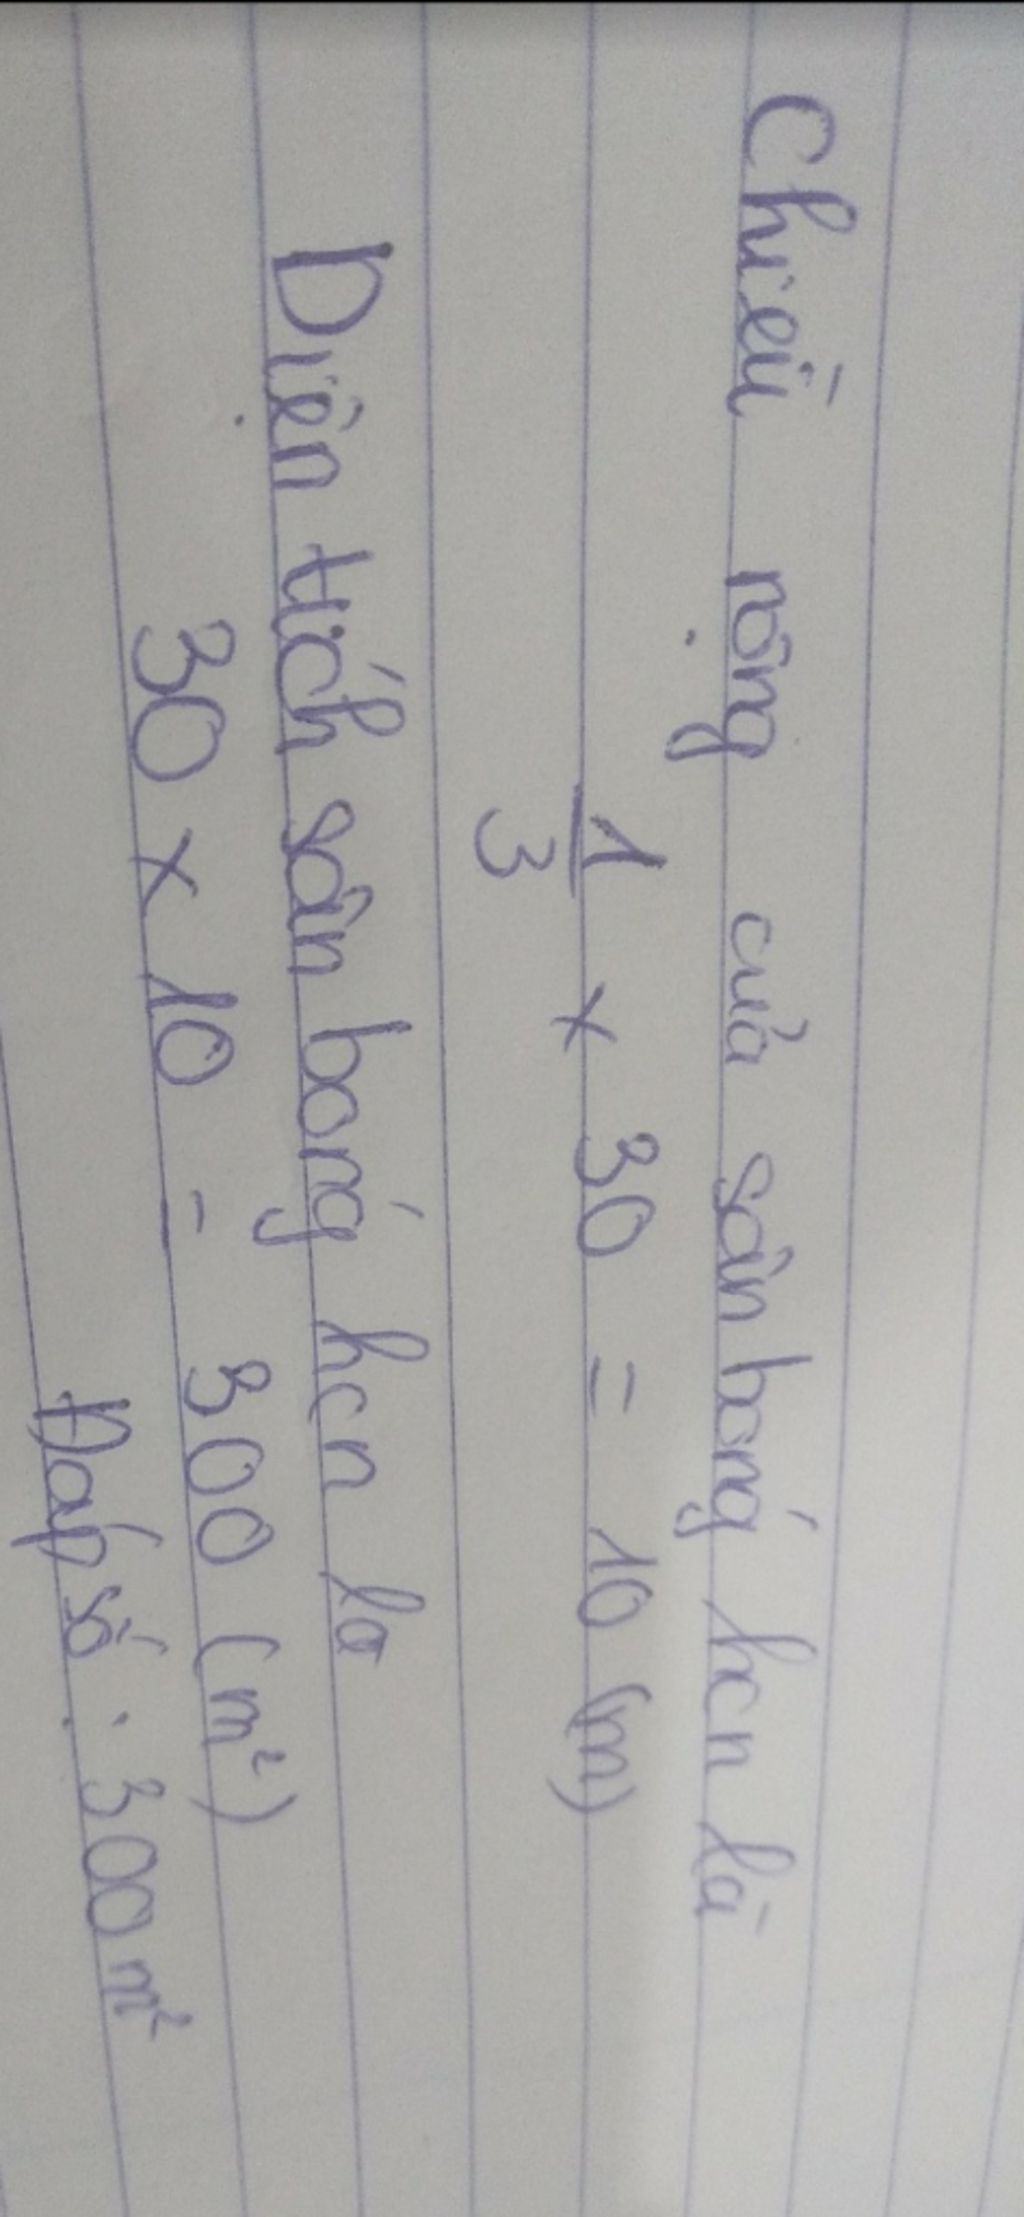 Chiều rộng của sân bóng hcn là
1/3 × 30 = 10 (m)
Diện tích sân bóng hcn là
30 × 10 = 300 (m²)
Đáp số : 300 m²